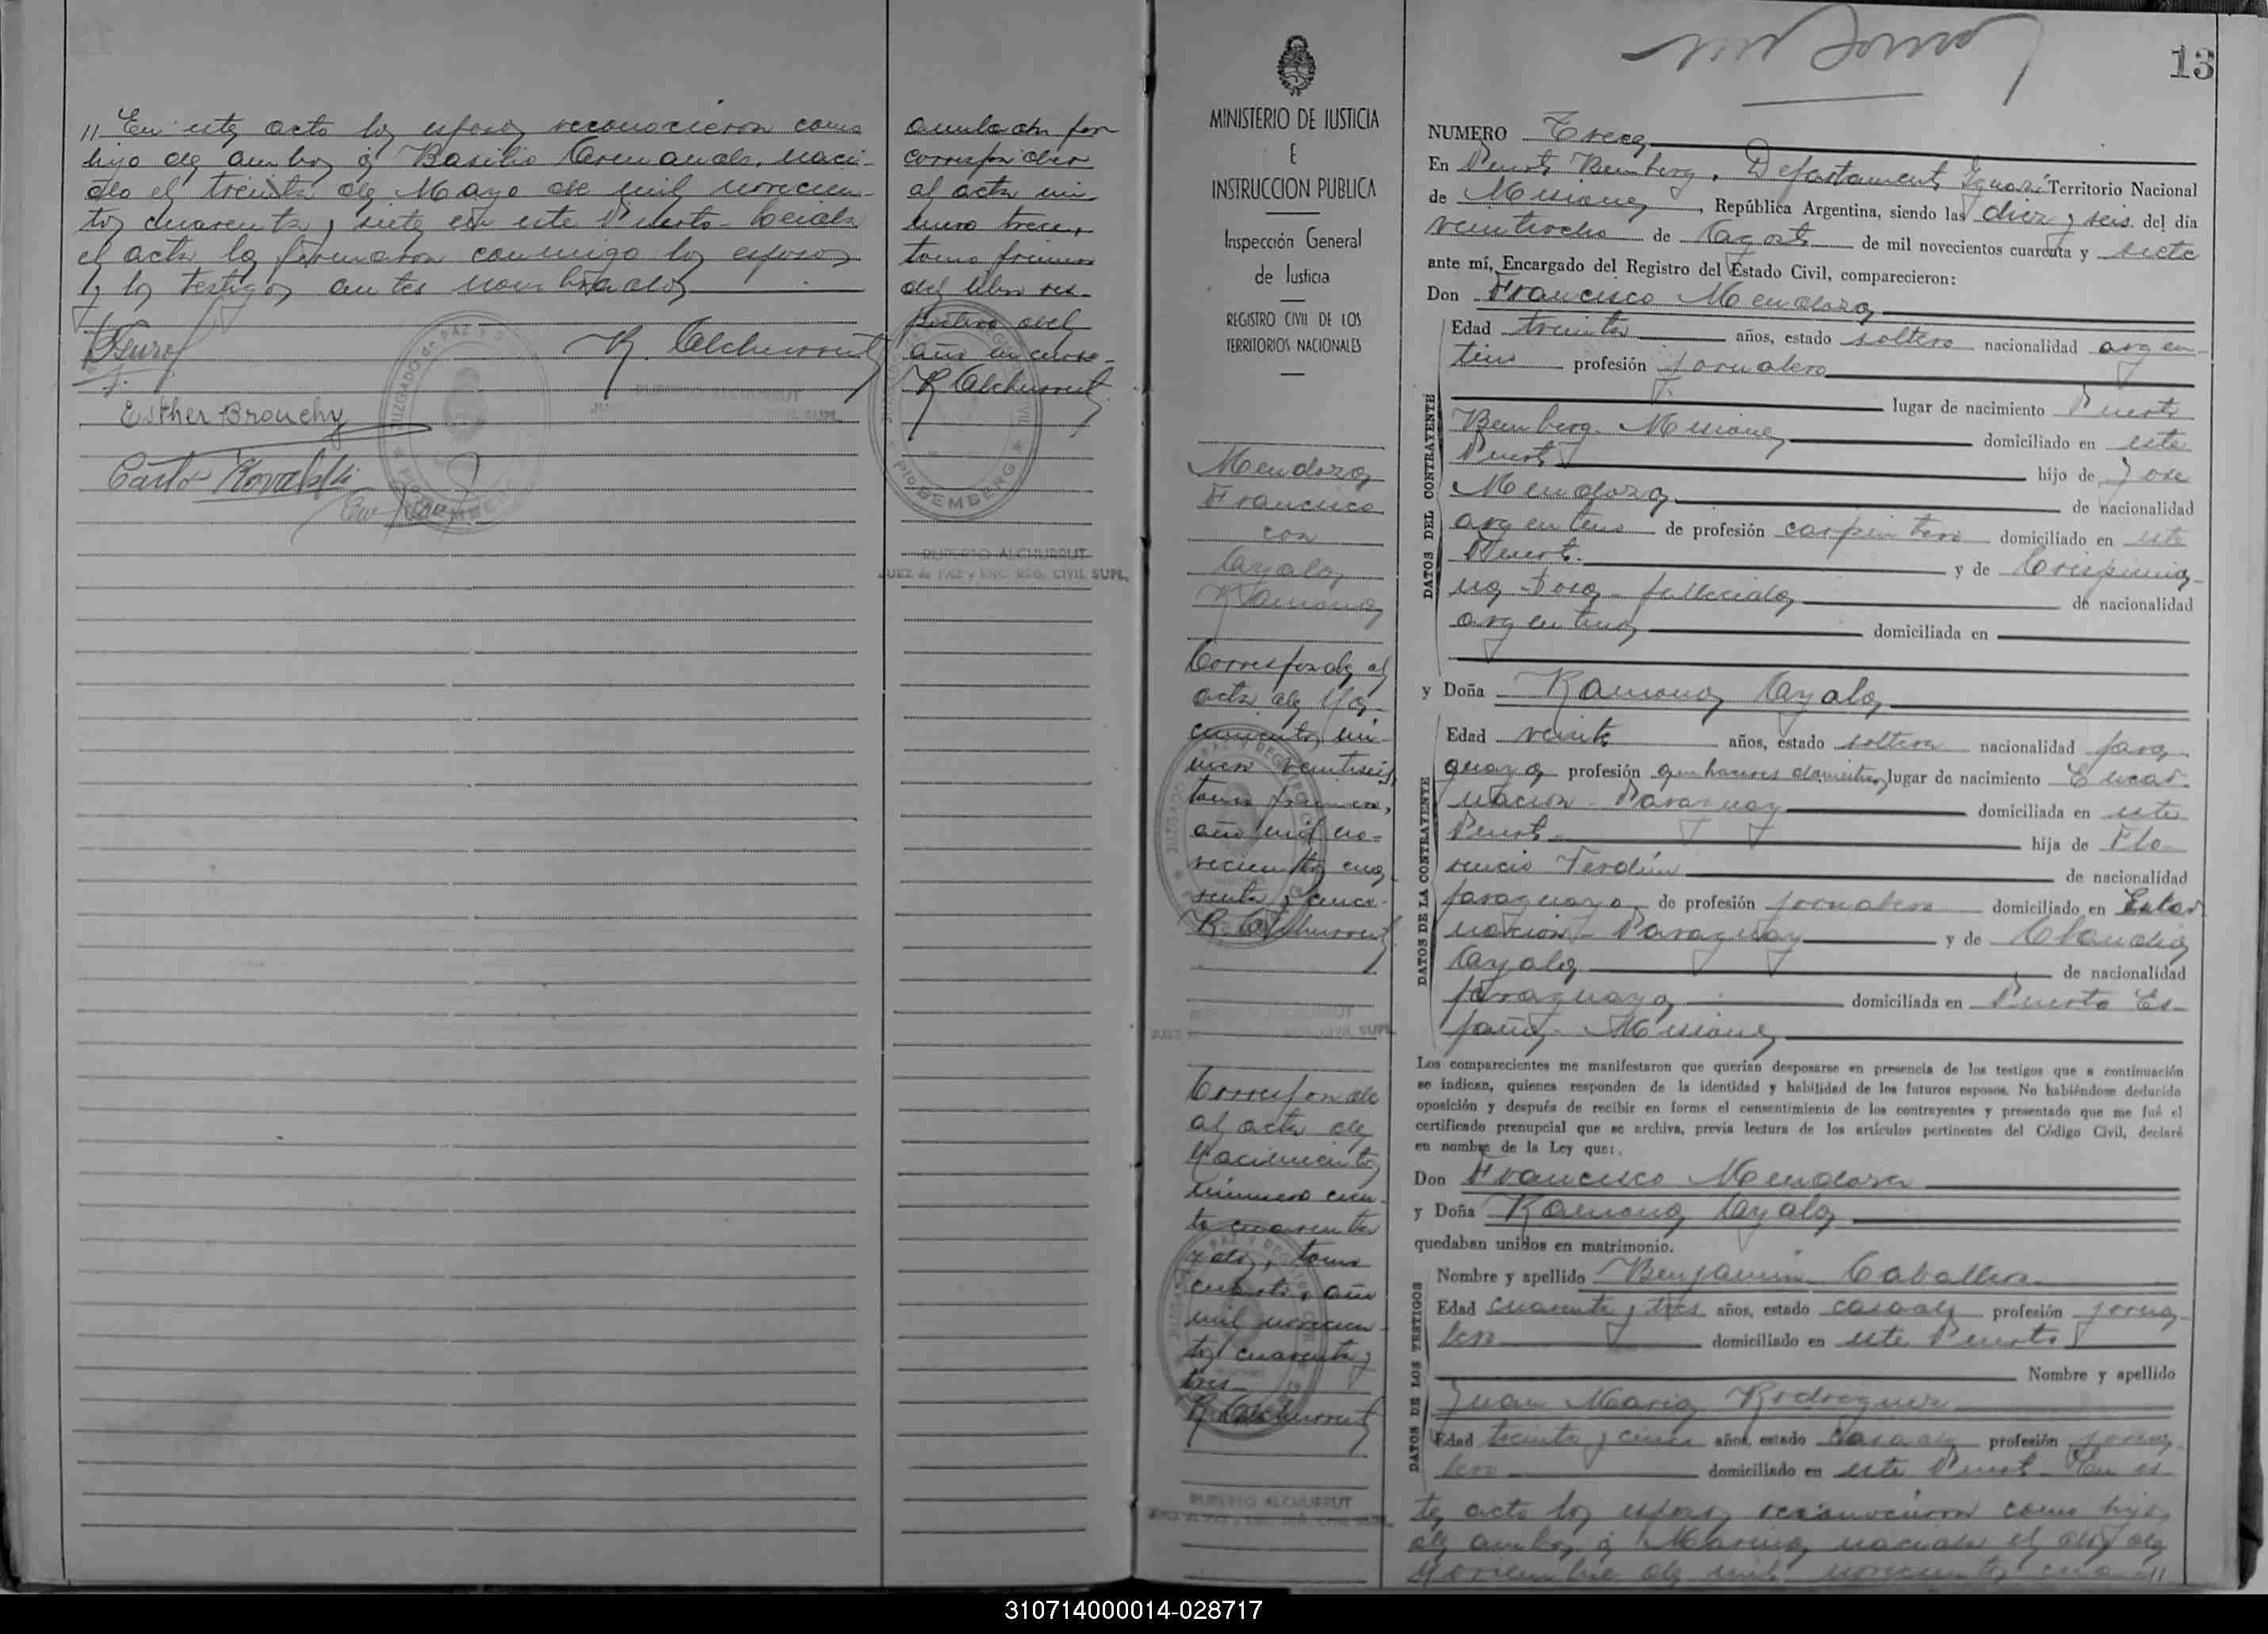 // En este acto los esposos reconocieron como
hijo de ambos a Basilio Armando, naci-
do el treinta de Mayo de mil novecien-
tos cuarenta y siete en este Puerto. Leida
el acta la firmaron conmigo los esposos
y los testigos antes nombrados
R. Alchurrut
Esther Brouchy
Carlos Kovalski
JUZGADO de PAZ
Pto BEMBERG
Anulada por
corresponder
al acta nú
mero trece,
tomo primero
del libro res-
pectivo del
año en curso.-
R. Alchurrut
PTO BEMBERG
RUPERTO ALCHURRUT
JUEZ de PAZ y ENC. REG. CIVIL SUPL.
MINISTERIO DE JUSTICIA
E
INSTRUCCION PUBLICA
Inspección General
de Justicia
REGISTRO CIVIL DE LOS
TERRITORIOS NACIONALES
Mendoza
Francisco
con
Ayala
Ramona
Corresponde al
acta de Na-
cimiento nú-
mero veintiseis,
tomo primero,
año mil no-
vecientos cua
renta y cinco.
R. Alchurrut
Corresponde
al acta de
Nacimiento
número cien-
to cuarenta
y dos, tomo
cuarto, año
mil novecien-
tos cuarenta y
tres-
R. Alchurrut
RUPERTO ALCHURRUT
13
NUMERO Trece
En Puerto Bemberg, Departamento Iguazú Territorio Nacional
de Misiones, República Argentina, siendo las diez y seis del día
veintiocho de Agosto de mil novecientos cuarenta y siete
ante mí, Encargado del Registro del Estado Civil, comparecieron:
Don Francisco Mendoza
Edad treinta años, estado soltero nacionalidad argen-
tino profesión jornalero
lugar de nacimiento Puerto
Bemberg Misiones domiciliado en este
Puerto hijo de Jose
Mendoza de nacionalidad
argentino de profesión carpintero domiciliado en este
Puerto. y de Crispinia-
na Sosa fallecida de nacionalidad
argentina domiciliada en
y Doña Ramona Ayala
Edad veinte años, estado soltera nacionalidad para
guaya profesión quehaceres domésticos lugar de nacimiento Encar
nación - Paraguay domiciliada en este
Puerto hija de Flo
rencio Verdún de nacionalidad
paraguaya de profesión jornalero domiciliado en Encar
nación - Paraguay y de Claudia
Ayala de nacionalidad
paraguaya domiciliada en Puerto Es-
paña - Misiones
DATOS DEL CONTRAYENTE
DATOS DE LA CONTRAYENTE
Los comparecientes me manifestaron que querían desposarse en presencia de los testigos que a continuación
se indican, quienes responden de la identidad y habilidad de los futuros esposos. No habiéndose deducido
oposición y después de recibir en forma el consentimiento de los contrayentes y presentado que me fué el
certificado prenupcial que se archiva, previa lectura de los artículos pertinentes del Código Civil, declaré
en nombre de la Ley que:
Don Francisco Mendoza
y Doña Ramona Ayala
quedaban unidos en matrimonio.
DATOS DE LOS TESTIGOS
Nombre y apellido Benjamin Caballero
Edad cuarenta y tres años, estado casado profesión jorna-
lero domiciliado en este Puerto
Nombre y apellido
Juan Maria Rodriguez
Edad treinta y cinco años, estado casado profesión jorna-
lero domiciliado en este Puerto - En es
te acto los esposos reconocieron como hijos
de ambos a Marina nacida el dos de
Noviembre de mil novecientos cua- //
310714000014-028717